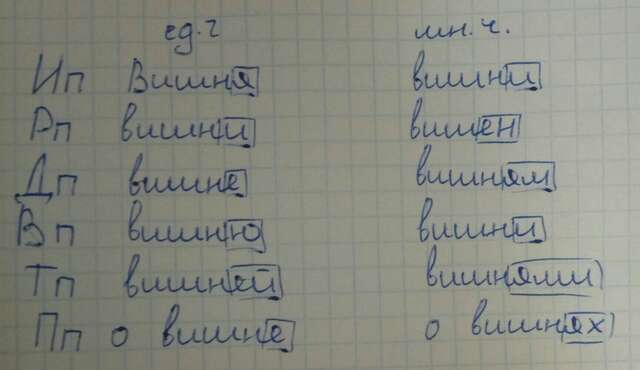 ед.ч мн.ч.
Ип Вишня вишни
Рп вишни вишен
Дп вишне вишням
Вп вишню вишни
Тп вишней вишнями
Пп о вишне о вишнях